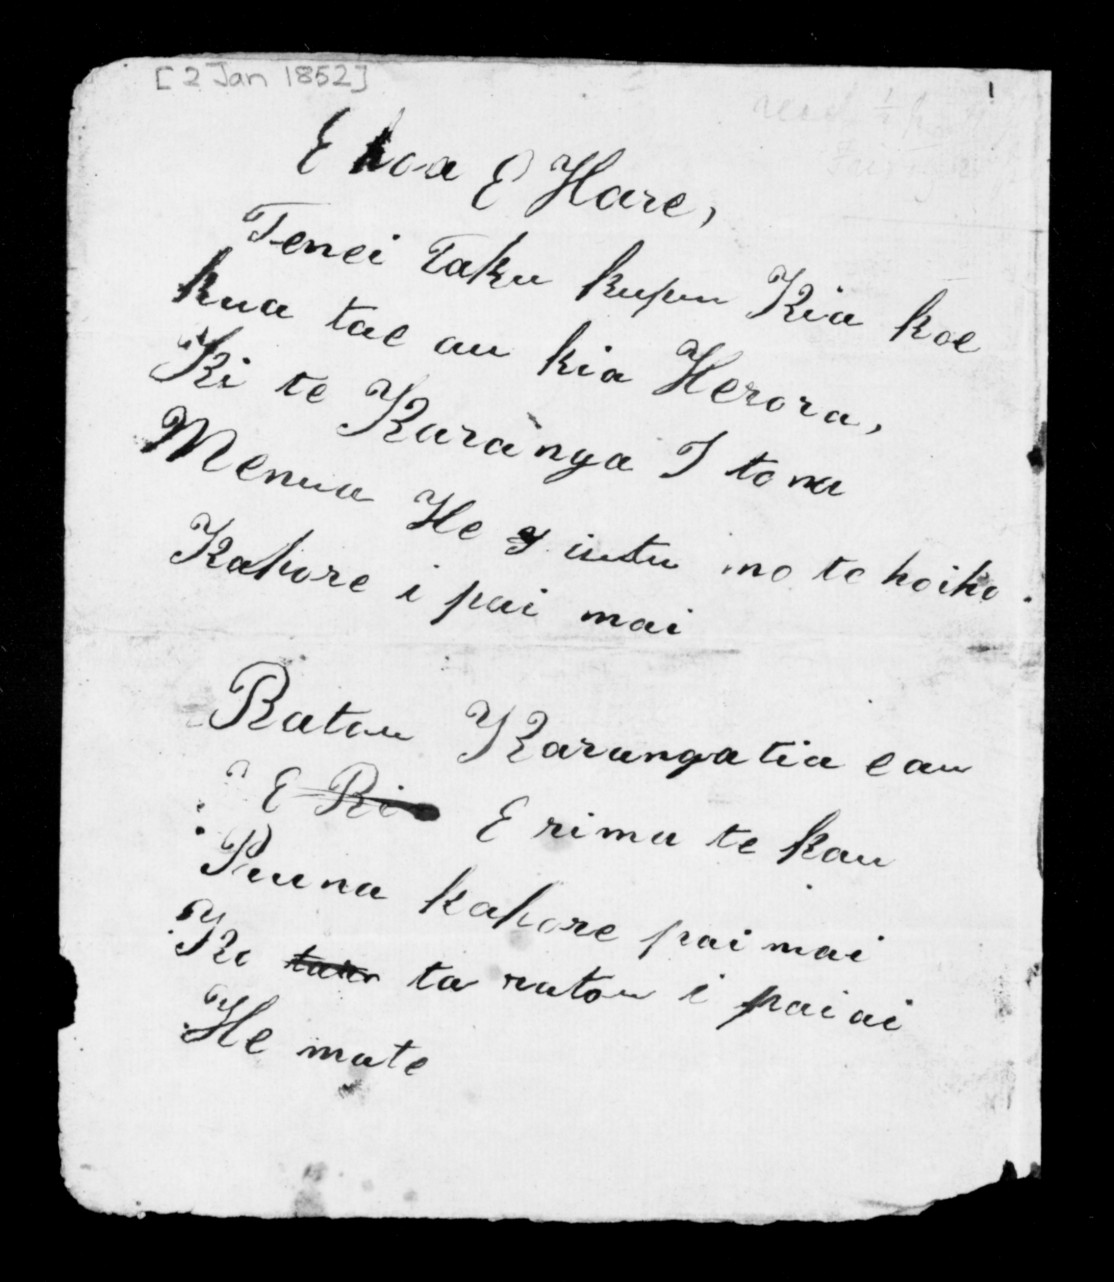 [2 Jan 1852]
1
E hoa E Hare,
Tenei Taku kupu Kia koe
kua tae au kia Herora,
Ki te Karanga I tona
Menua He iutu mo te hoiho.
Kahore i pai mai
Ratou Karangatia e au
E Ri E rima te kau
Puuna kahore pai mai
Ko ta ratou i pai ai
He mate